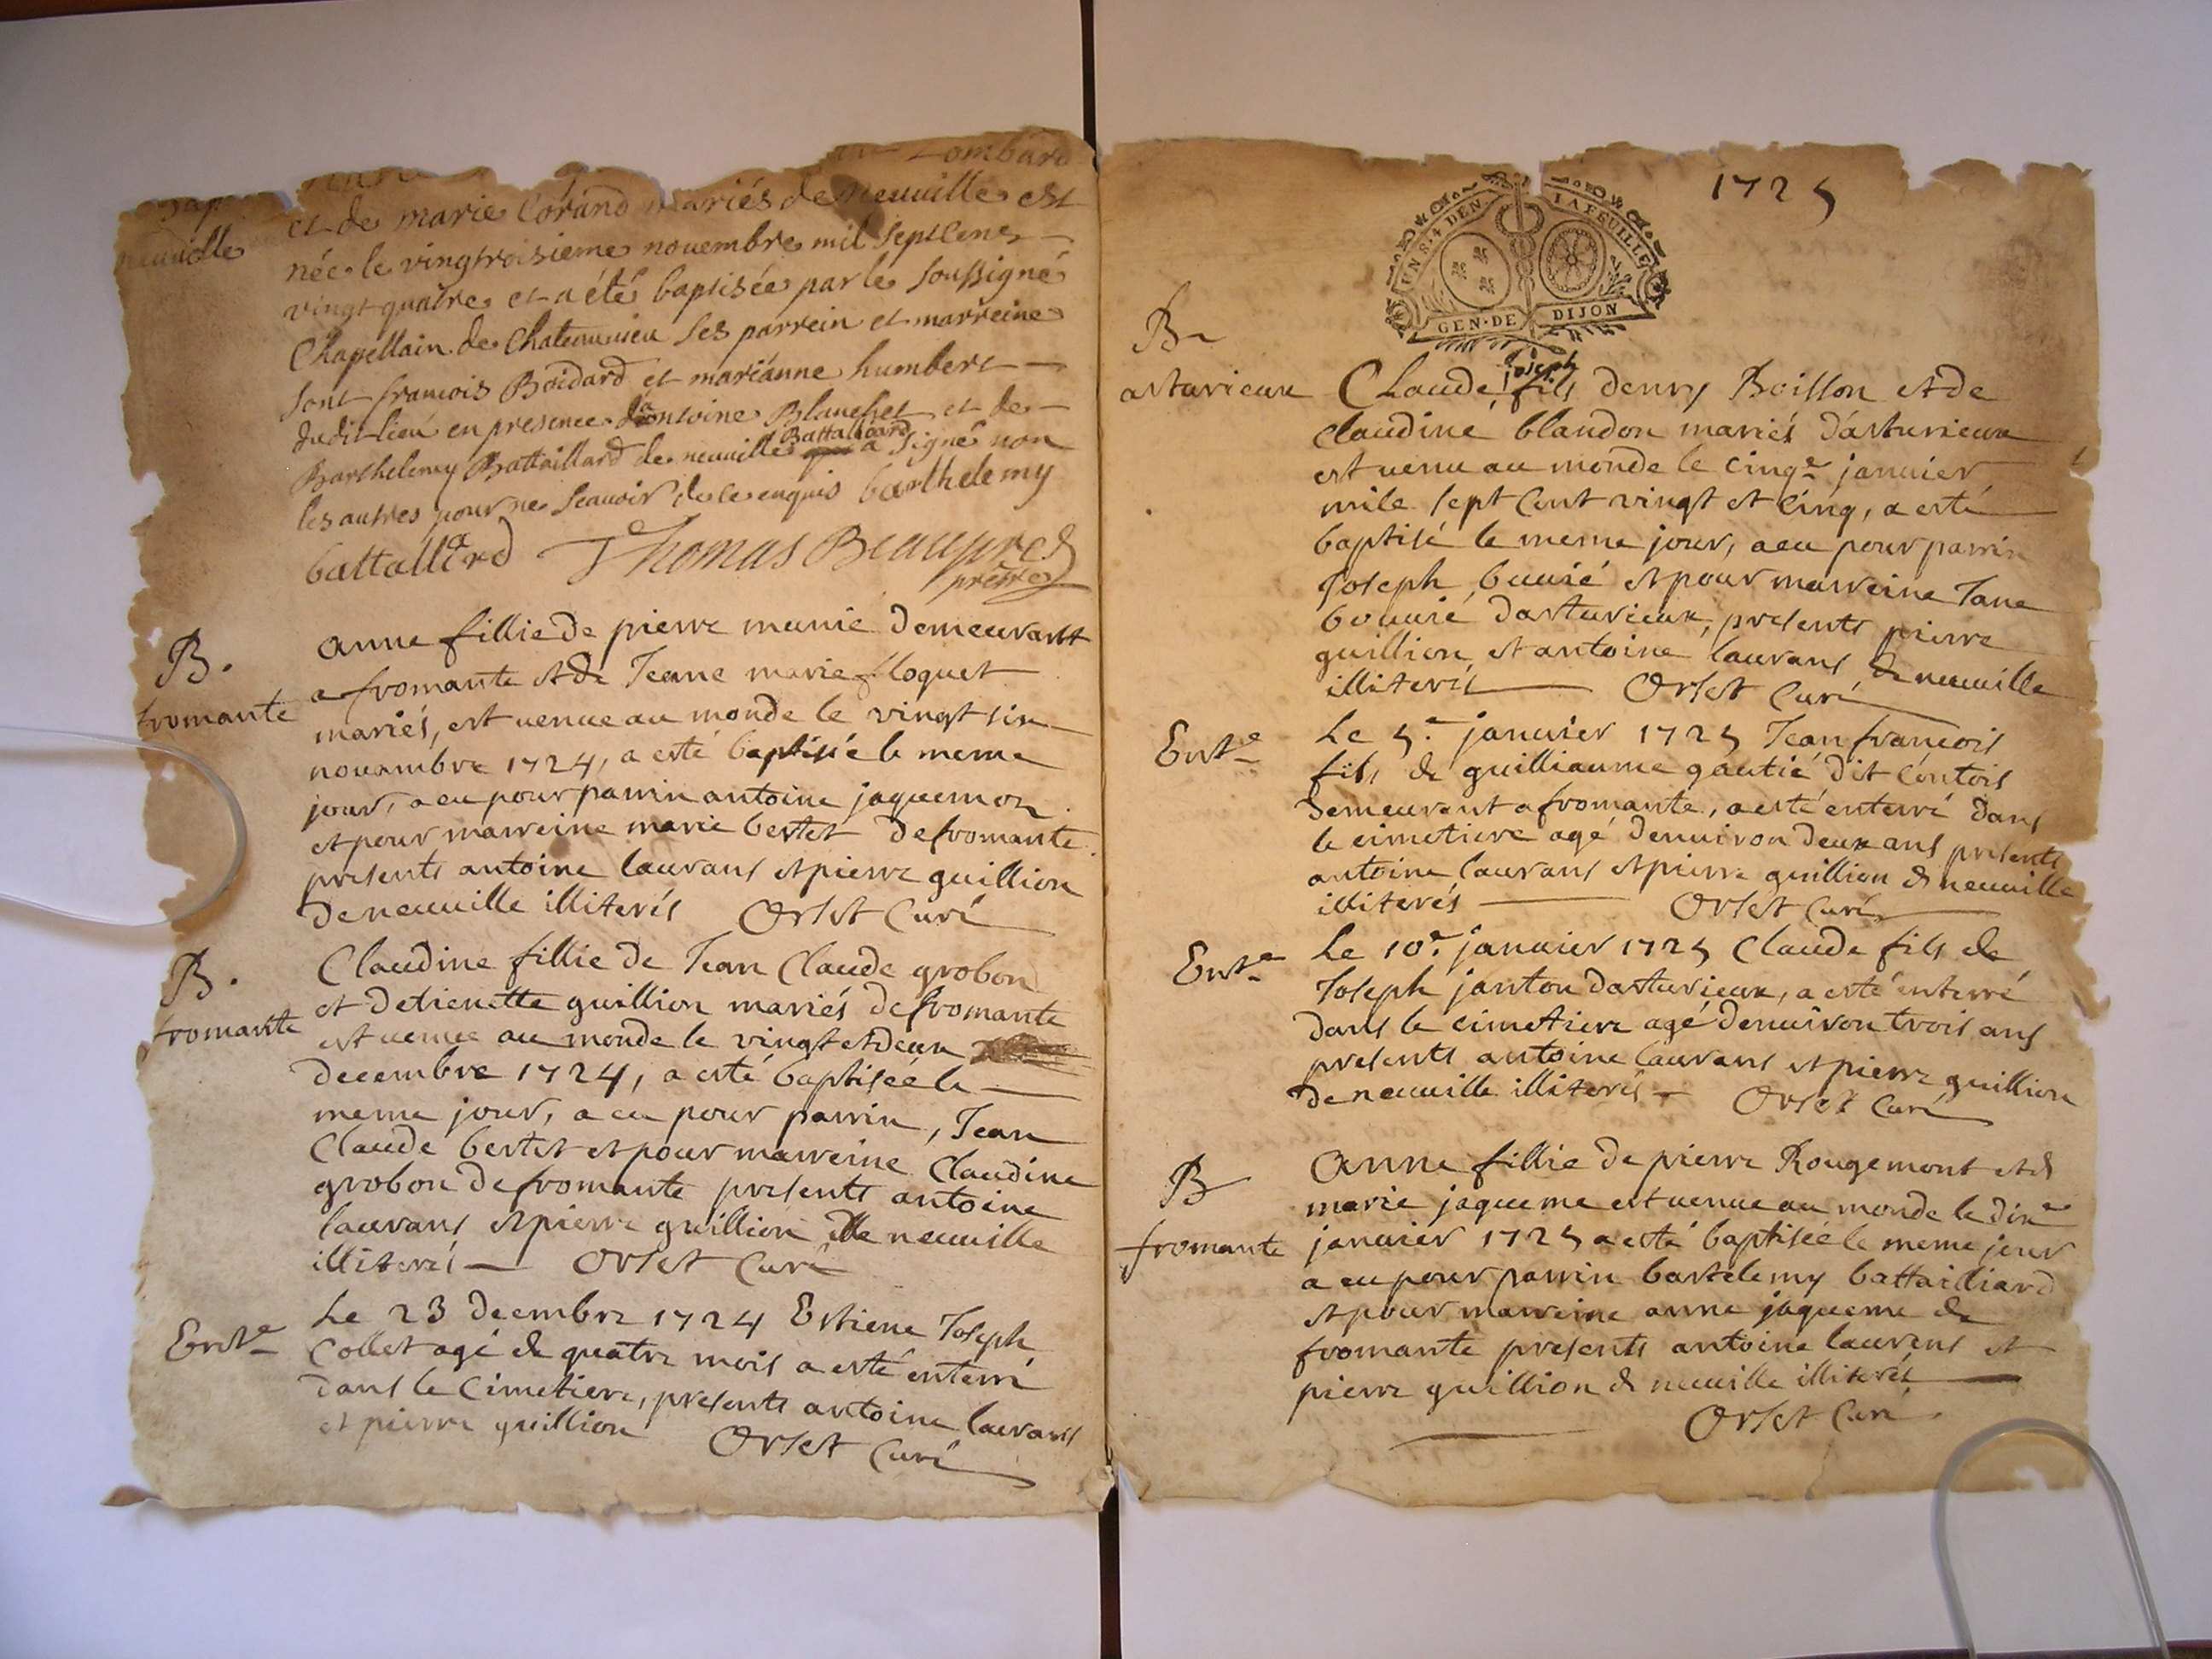 Lombard
Bap
neuville
et de marie Corand mariés de Neuville est
née le vingtroisieme novembre mil septcent
vingt quatre et a été baptisée par le soussigné
Chapellain de Chateauvieu ses parrein et marreine
sont francois Boidard et marianne humbert
dudit lieu en presence d'antoine Blanchet et de
Barthelemy Battaillard de neuville Battaillard a signé non
les autres pour ne scauoir de ce enquis barthelemy
battalliard Thomas Beaupred
prêtre
B.
fromante
anne fillie de pierre munié demeurant
a fromante et de Jeane marie floquet
mariés, est venue au monde le vingt six
nouambre 1724, a esté baptisié le meme
jour, a eu pour parrin antoine jaquemon
et pour marreine marie bertet de fromante
presents antoine laurans et pierre guillion
de neuuille illiterés Orset Curé
B.
fromante
Claudine fillie de Jean Claude grobon
et detienette guillion mariés de fromante
est venue au monde le vingt et deux
decembre 1724, a esté baptisée le
meme jour, a eu pour parrin, Jean
Claude bertet et pour marreine Claudine
grobon de fromante presents antoine
laurans et pierre guillion de neuuille
illiterés Orset Curé
Entr.e
Le 23 decembre 1724 Estiene Joseph
Collet agé de quatre mois a esté enterré
dans le Cimetiere, presents antoine laurans
et pierre guillion Orset Curé
1725
UN S. 4 DEN. LA FEUILLE
GEN. DE DIJON
B
arturieux
joseph
Claude, fils denry Boisson et de
claudine blandon mariés d'arturieux
est venu au monde le cinq.e januier
mile sept cent vingt et cinq, a esté
baptisé le meme jour, a eu pour parrin
Joseph buuié et pour marreine Jane
bouuié darturieux, presents pierre
guillion et antoine laurans de neuuille
illiterés Orset Curé
Entr.e
Le 5.e januier 1725 Jean francois
fils de guilliaume gautié dit Contois
demeurant a fromante, a esté enterré dans
le cimetiere agé denuiron deux ans presents
antoine laurans et pierre guillion de neuuille
illiterés Orset Curé
Entr.e
Le 10.e januier 1725 Claude fils de
Joseph janton darturieux, a esté enterré
dans le cimetiere agé denuiron trois ans
presents antoine laurans et pierre guillion
de neuuille illiterés Orset Curé
B
fromante
Anne fillie de pierre Rougemont et de
marie jaqueme est venue au monde le dix.e
januier 1725 a esté baptisée le meme jour
a eu pour parrin bartelemy battailliard
et pour marreine anne jaqueme de
fromante presents antoine laurens et
pierre guillion de neuuille illiterés
Orset Curé